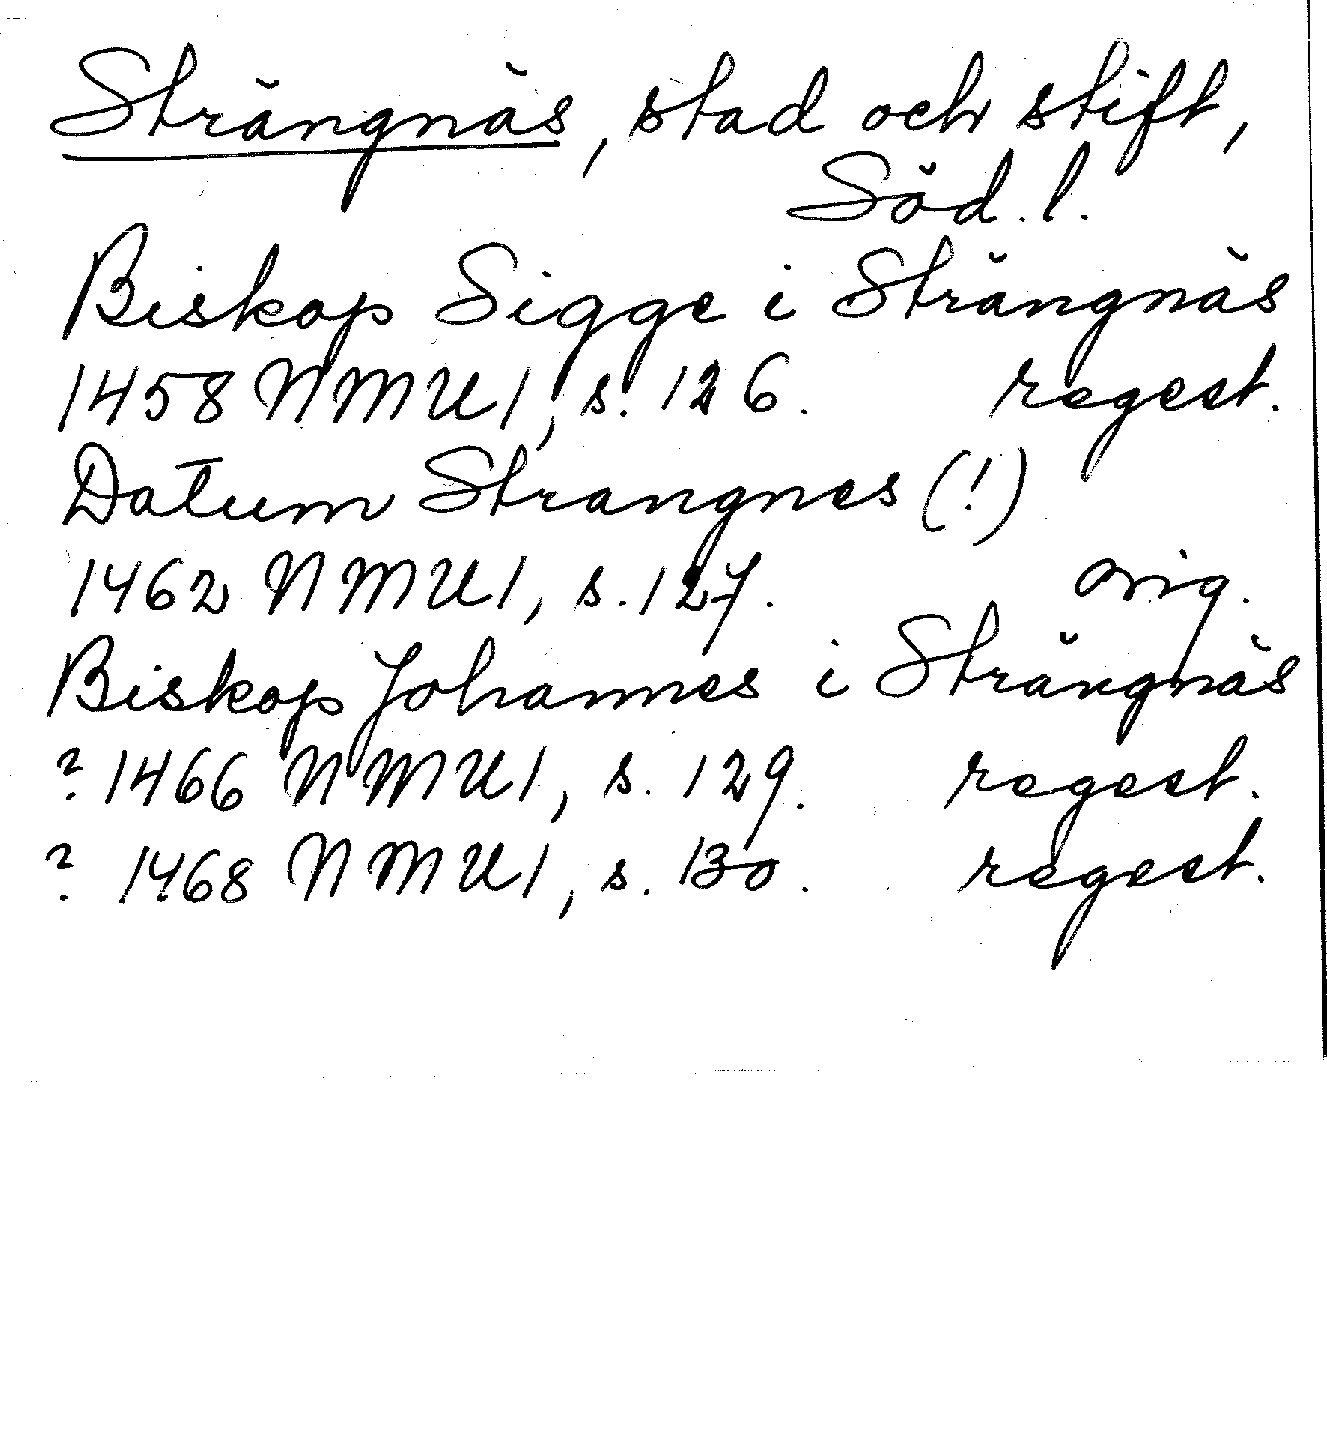 Strängnäs, stad och stift,
Söd. l.
Biskop Sigge i Strängnäs
1458 NMU 1, s. 126. regest.
Datum Strangnes (!)
1462 NMU 1, s. 127. orig.
Biskop Johannes i Strängnäs
? 1466 NMU 1, s. 129. regest.
? 1468 NMU 1, s. 130. regest.